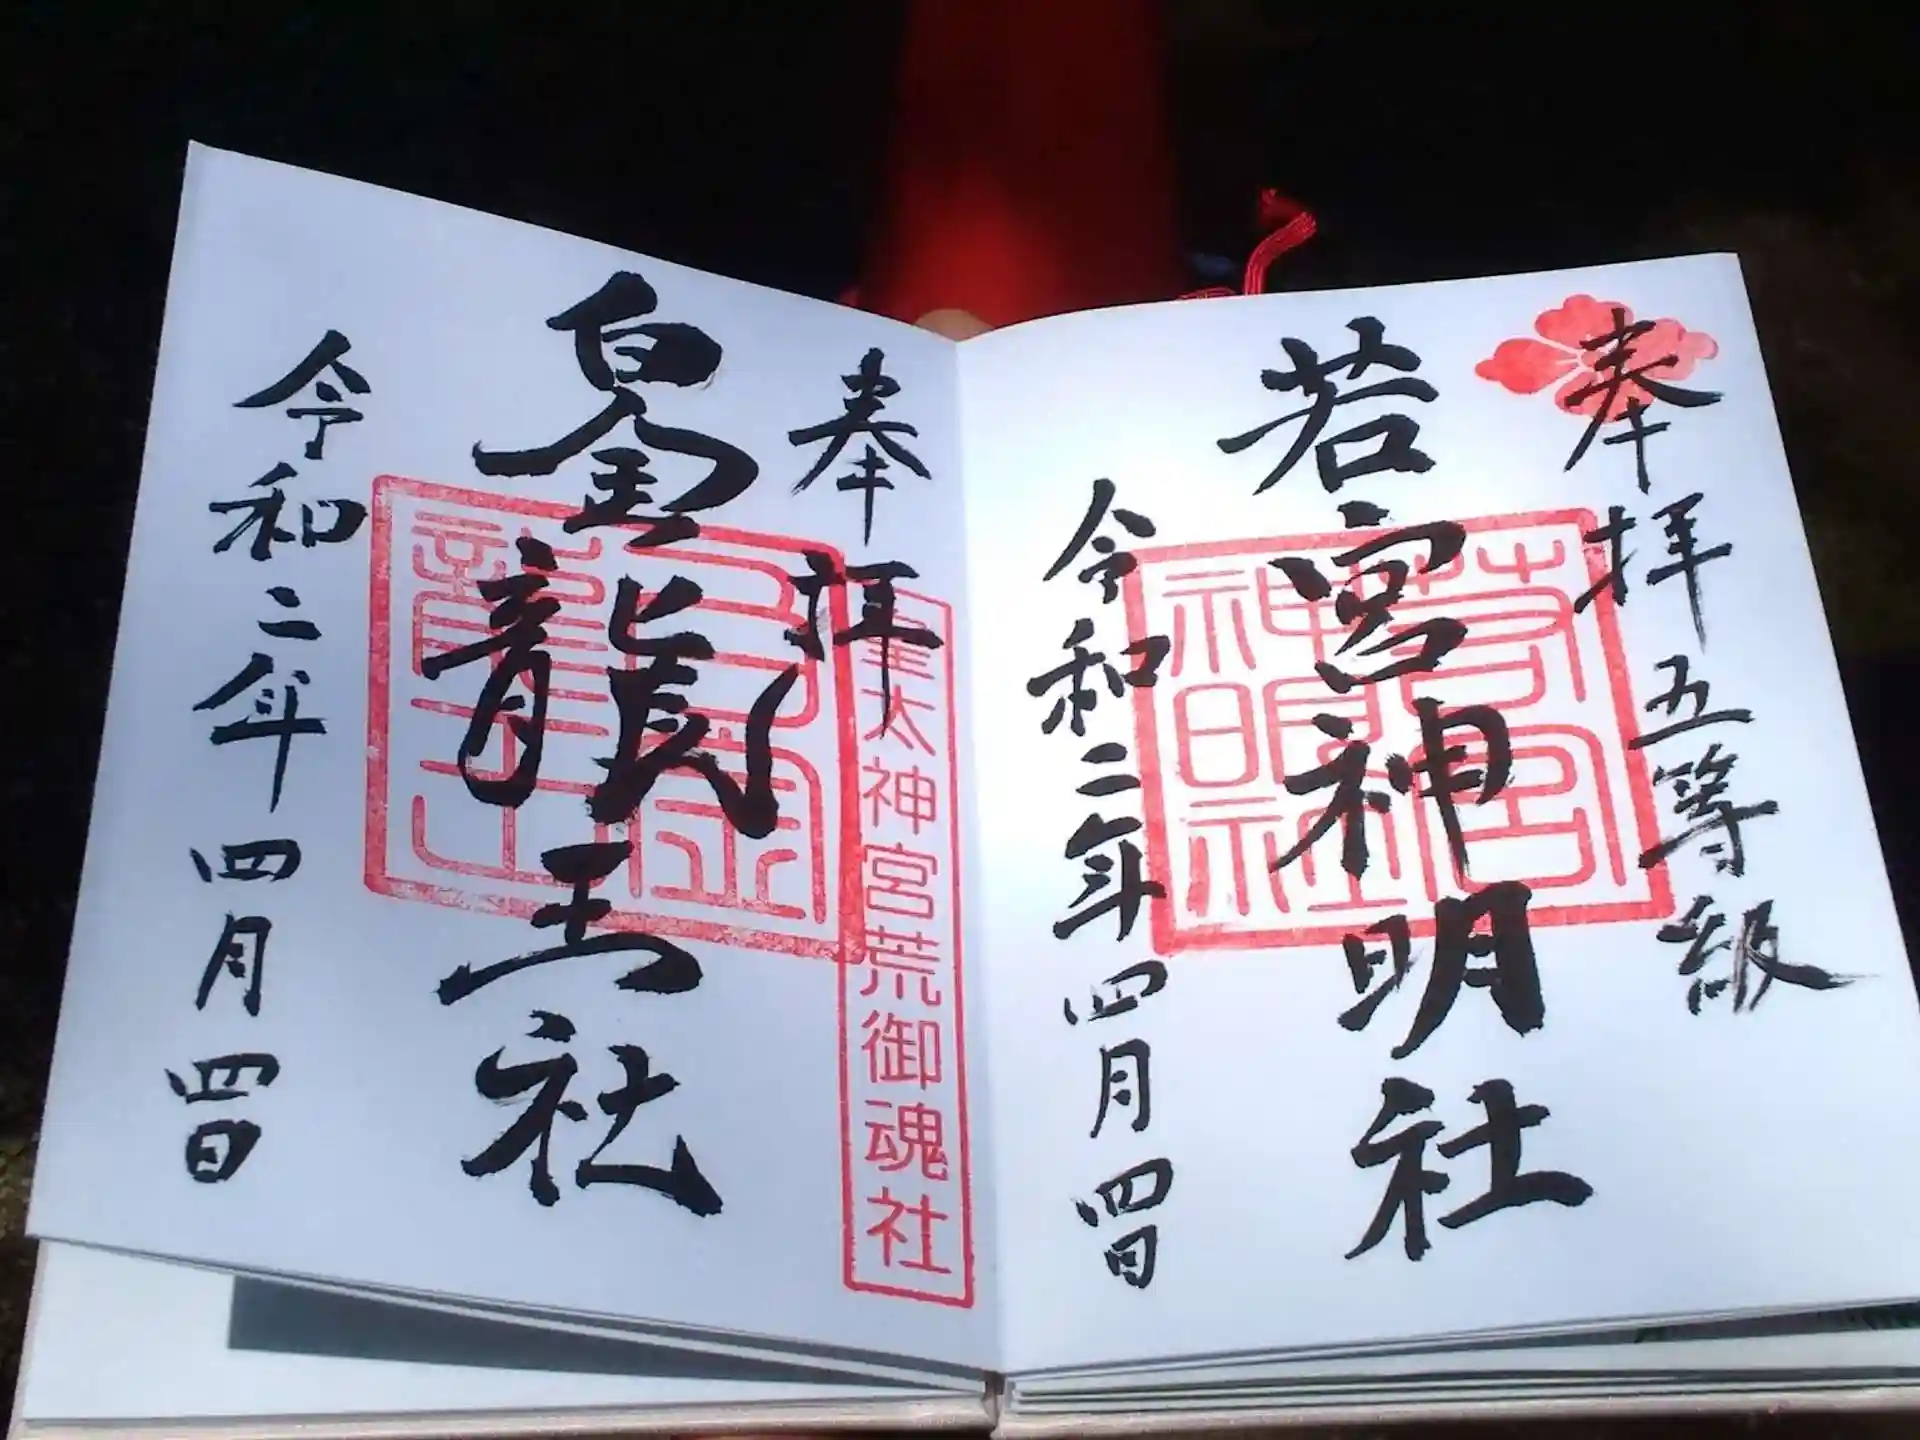 奉拝 五等級
若宮神明社
若宮神明社
令和二年四月四日
奉拝
皇太神宮荒御魂社
白金龍王社
白金龍王
令和二年四月四日